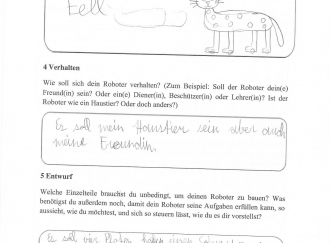 Fell
4 Verhalten
Wie soll sich dein Roboter verhalten? (Zum Beispiel: Soll der Roboter dein(e)
Freund(in) sein? Oder ein(e) Diener(in), Beschützer(in) oder Lehrer(in)? Ist der
Roboter wie ein Haustier? Oder doch anders?)
Er soll mein Haustier sein aber auch
meine Freundin.
5 Entwurf
Welche Einzelteile brauchst du unbedingt, um deinen Roboter zu bauen? Was
benötigst du außerdem noch, damit dein Roboter seine Aufgaben erfüllen kann, so
aussieht, wie du du möchtest, und sich so steuern lässt, wie du es dir vorstellst?
Er soll vier Pfoten haben einen